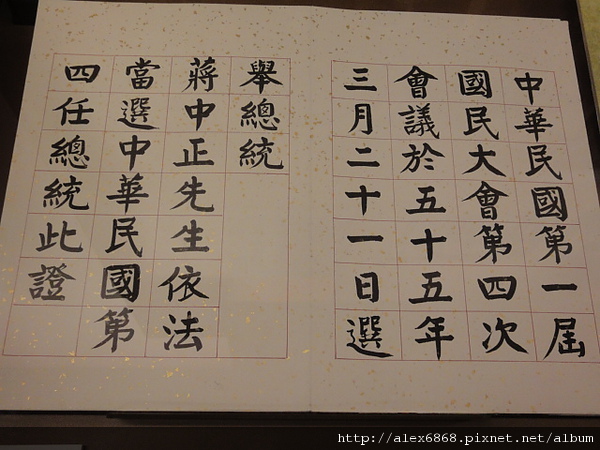 中華民國第一屆
國民大會第四次
會議於五十五年
三月二十一日選
舉總統
蔣中正先生依法
當選中華民國第
四任總統此證
http://alex6868.pixnet.net/album